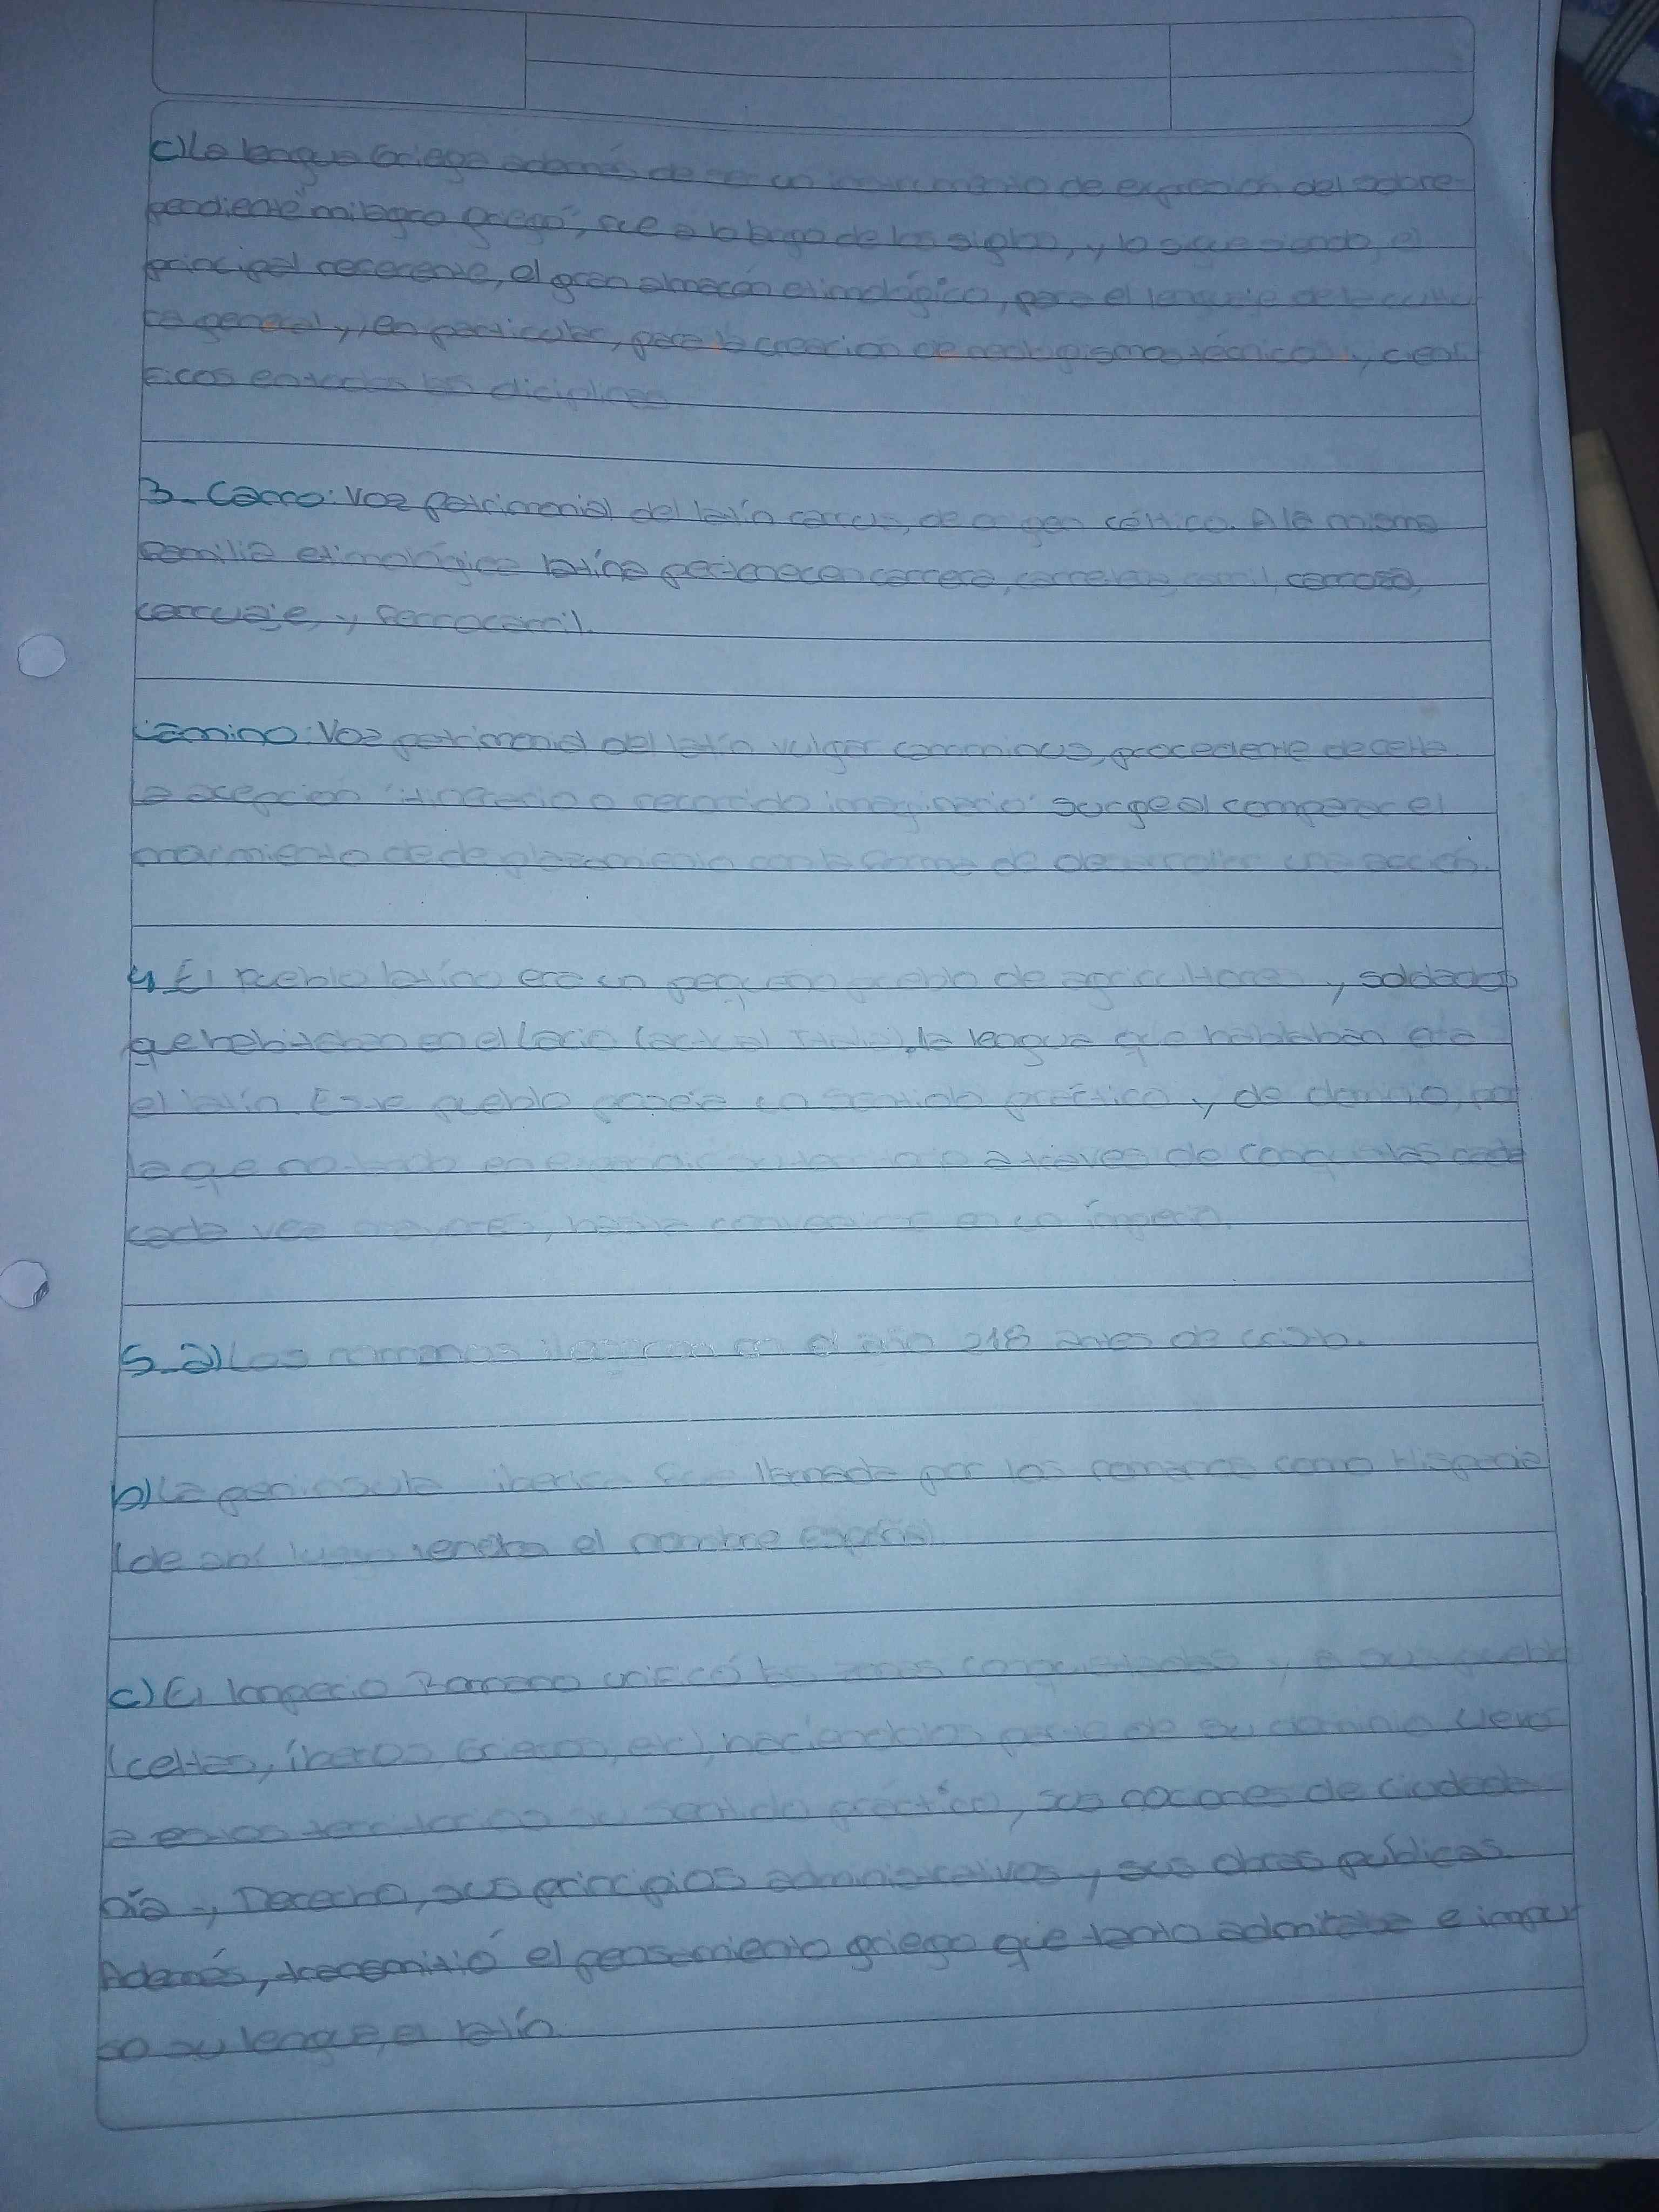 c) La lengua Griega además de ser un instrumento de expresión del sobre
pendiente "milagro griego", fue a lo largo de los siglos, y lo sigue siendo, el
principal referente, el gran almacén etimológico, para el lenguaje de la cultu
ra general y, en particular, para la creación de neologismos técnicos y cientí
ficos en todas las diciplinas
3. Carro: Voz patrimonial del latín carrus, de origen céltico. A la misma
familia etimológica latina pertenecen carrera, carreta, carril, carroza,
carruaje, y ferrocarril.
Camino: Voz patrimonial del latín vulgar camminus, procedente de celta
la acepción 'itinerario o recorrido imaginario' surge al comparar el
movimiento de desplazamiento con la forma de desarrollar una acción.
4 El pueblo latino era un pequeño pueblo de agricultores y soldados
que habitaban en el Lacio (actual Italia), la lengua que hablaban era
el latín. Este pueblo poseía un sentido práctico y de dominio, por
lo que a través de conquistas cada
cada vez mayores, hasta convertirse en un imperio.
5 a) Los romanos llegaron en el año 218 antes de cristo.
b) La peninsula iberica fue llamada por los romanos como Hispania
(de ahí luego vendra el nombre español)
c) El Imperio Romano unificó las zonas conquistadas y a sus pueblos
(celtas, íberos, Griegos, etc), haciendolos parte de su dominio. Llevo
a estos territorios su sentido práctico, sus nociones de ciudada
nía y Derecho, sus principios administrativos y sus obras públicas.
Además, transmitió el pensamiento griego que tanto admiraba e impu
so su lengua, el latín